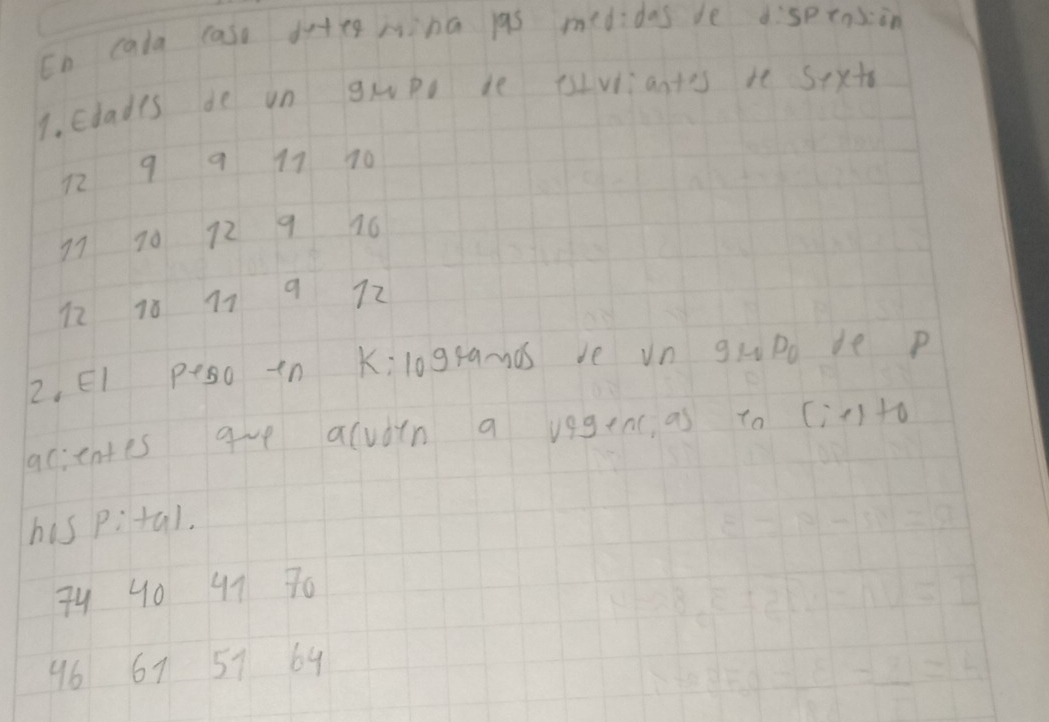 En cada caso determina las medidas de dispersión
1. Edades de un grupo de estudiantes de sexto
12 9 9 11 10
11 10 12 9 10
12 10 11 9 12
2. El peso en Kilogramos de un grupo de P
acientes que acuden a urgencias en cierto
hospital.
74 40 41 70
46 61 51 64